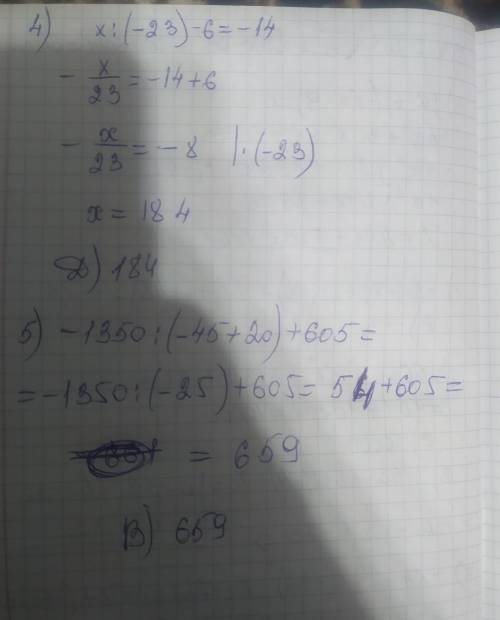 4) x:(-23)-6=-14
- x/23 = -14+6
- x/23 = -8 |·(-23)
x = 184
Д) 184
5) -1350:(-45+20)+605=
= -1350:(-25)+605= 54+605=
= 659
В) 659